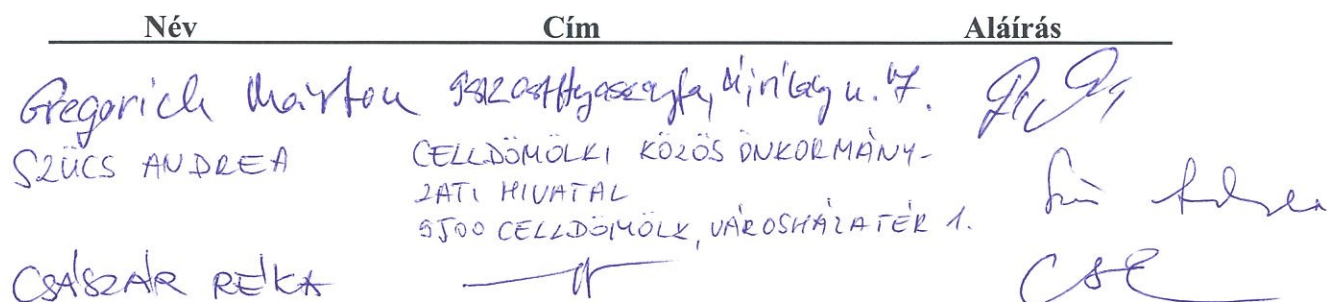 Név Cím Aláírás
Gregorich Márton 9512 Ostffyasszonyfa, Újvilág u. 7.
SZÜCS ANDREA CELLDÖMÖLKI KÖZÖS ÖNKORMÁNY-
ZATI HIVATAL
9500 CELLDÖMÖLK, VÁROSHÁZA TÉR 1.
CSÁSZÁR RÉKA